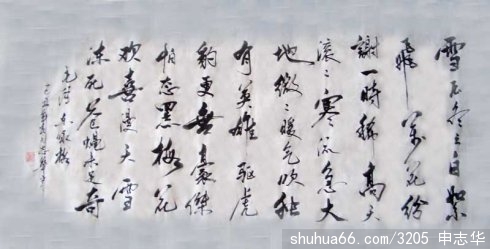 雪压冬云白絮
飛萬花紛
謝一時稀高天
滚滚寒流急大
地微微暖气吹独
有英雄驱虎
豹更無豪傑
怕熊罴梅花
欢喜漫天雪
冻死苍蝇未足奇
shuhua66.com/3205 申志华